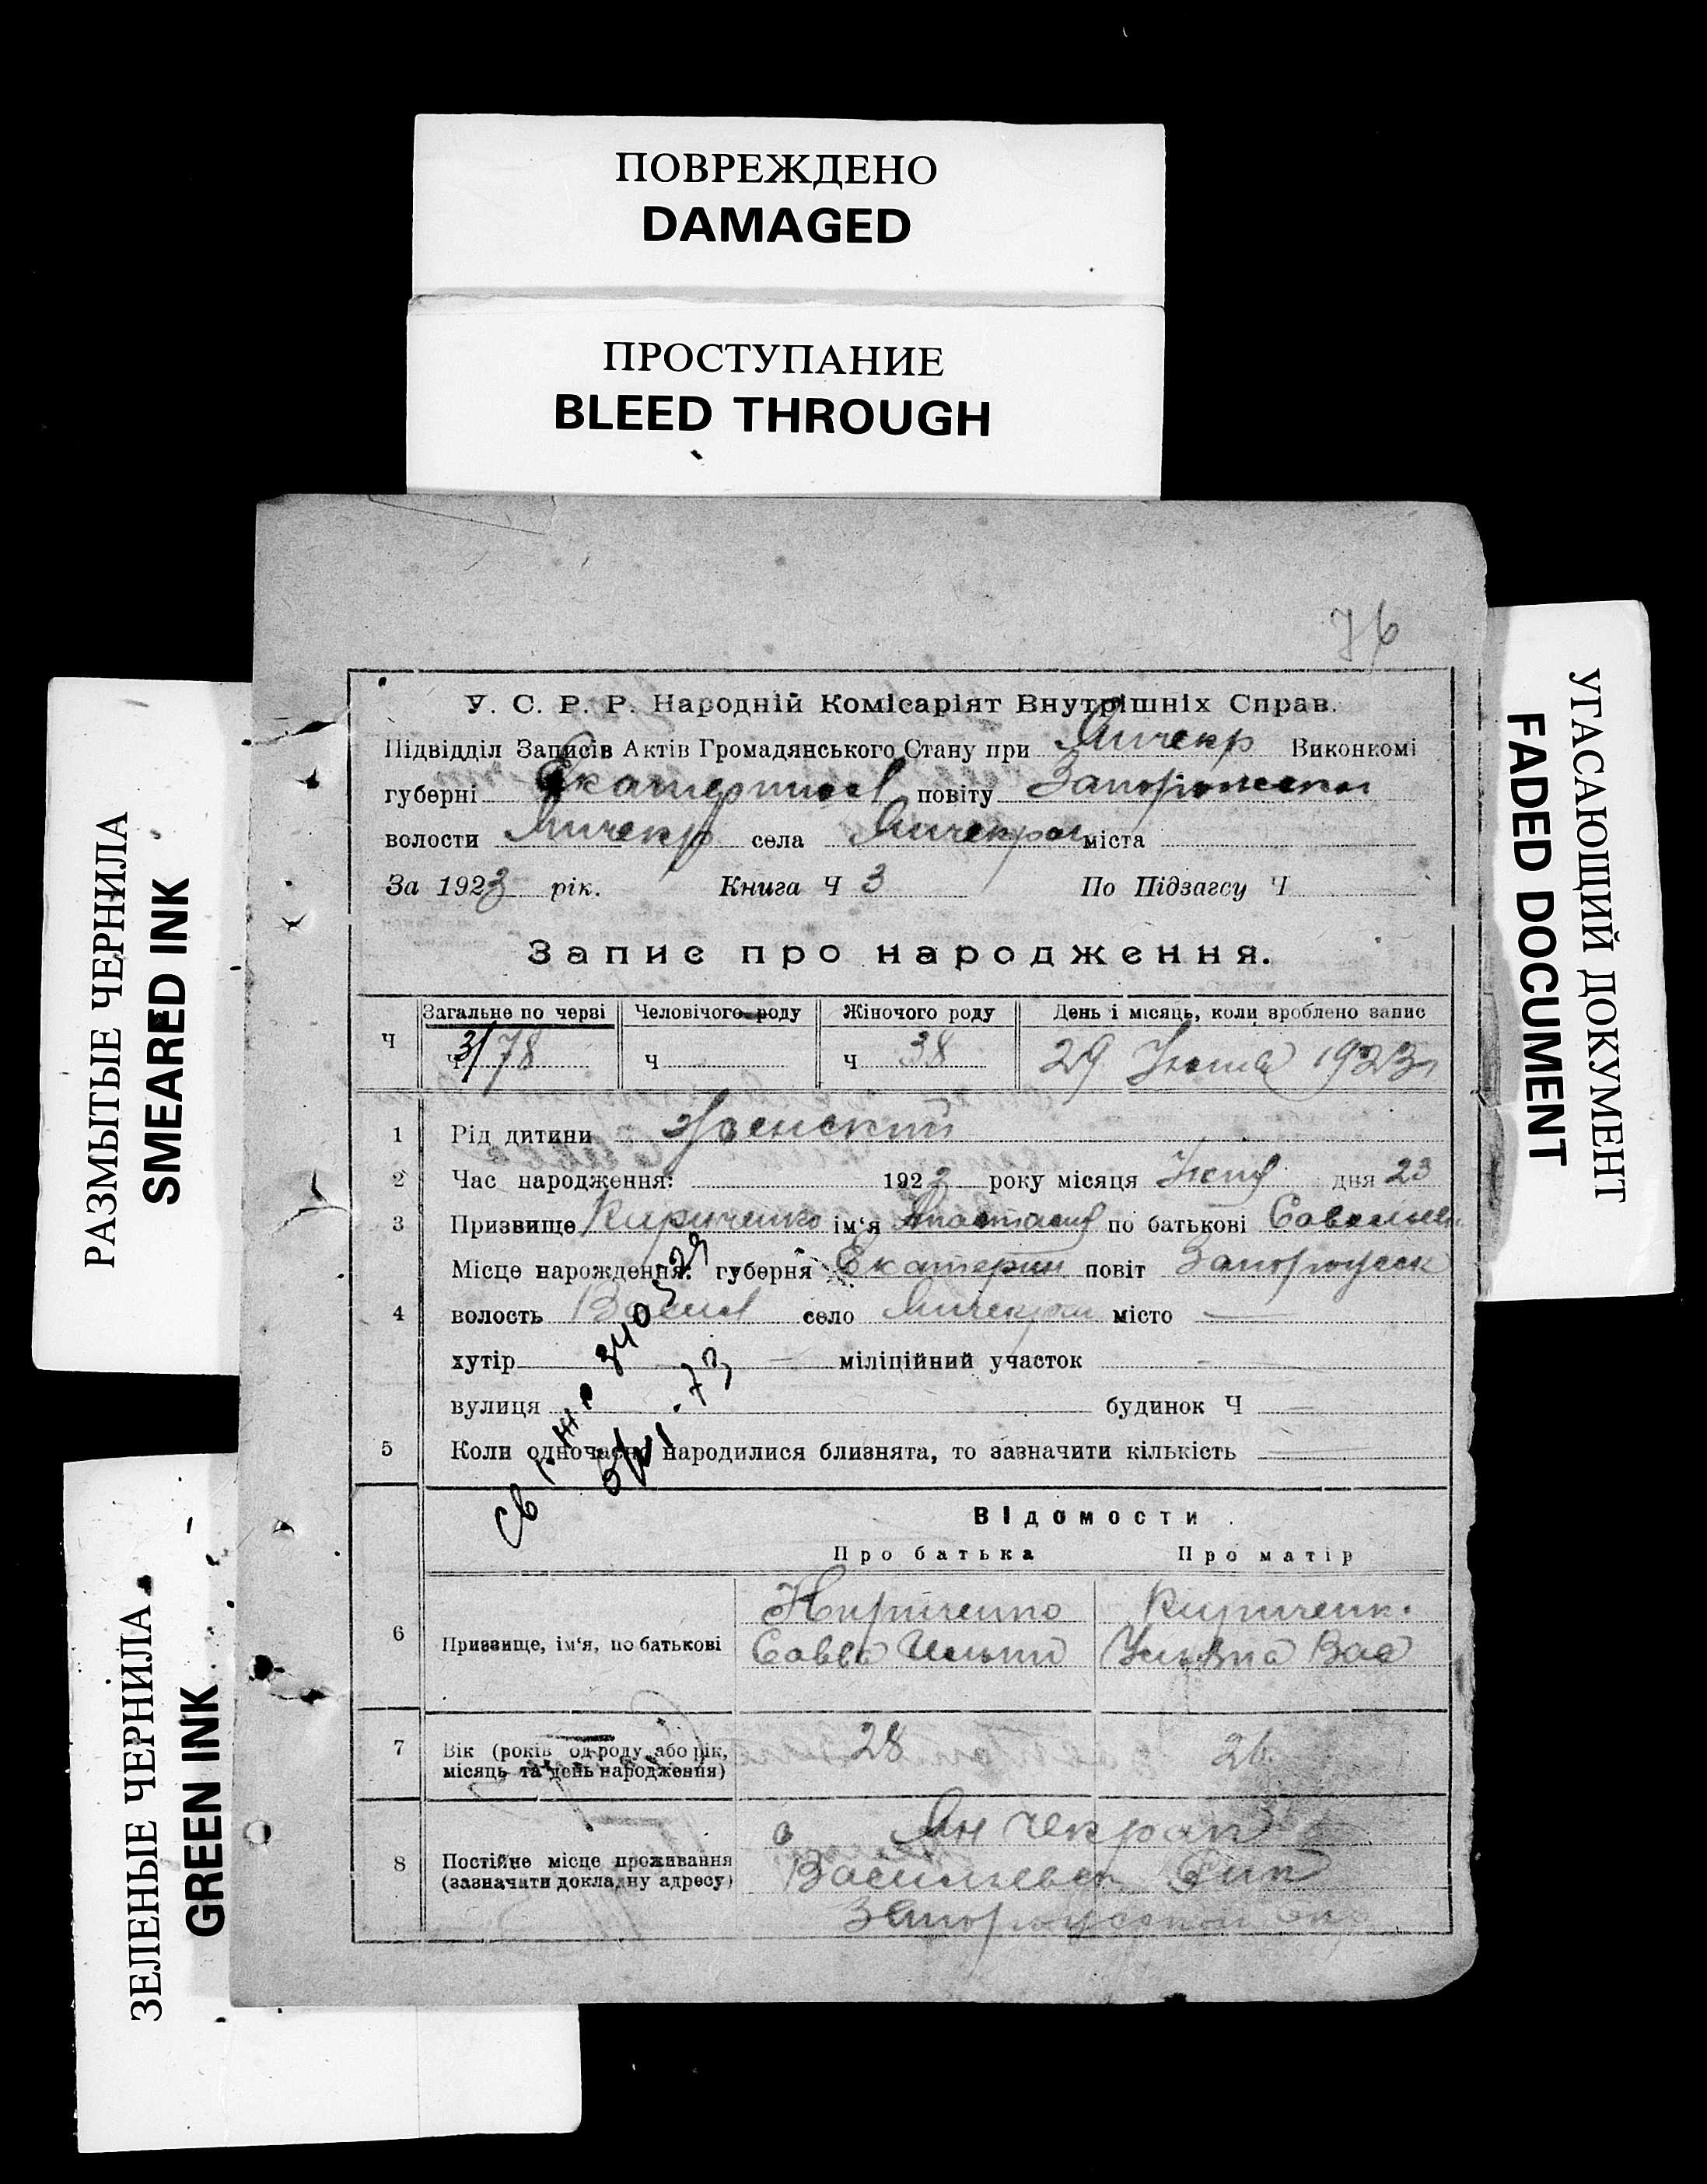 ПОВРЕЖДЕНО
DAMAGED
ПРОСТУПАНИЕ
BLEED THROUGH
РАЗМЫТЫЕ ЧЕРНИЛА
SMEARED INK
ЗЕЛЕНЫЕ ЧЕРНИЛА
GREEN INK
УГАСАЮЩИЙ ДОКУМЕНТ
FADED DOCUMENT
76
У. С. Р. Р. Народній Комісаріят Внутрішніх Справ.
Підвідділ Записів Актів Громадянського Стану при Янчекр Виконкомі
губерні Екатеринос повіту
волости Янчекр села Янчекрак міста
За 1923 рік. Книга Ч 3 По Підзагсу Ч
Запис про народження.
Загальне по черзі Человічого роду Жіночого роду День і місяць, коли зроблено запис
Ч Ч 3/78 Ч Ч 38 29 1923
1 Рід дитини женский
2 Час народження: 1922 року місяця дня 23
3 Призвище Кириченко ім‘я Анастасия по батькові
Місце нарождення: губерня Екатерин повіт
4 волость село Янчекрак місто
хутір міліційний участок
вулиця будинок Ч
5 Коли одночасно народилися близнята, то зазначити кількість
Відомости
Про батька Про матір
Кириченко Кириченк.
6 Призвище, ім‘я, по батькові Савва
7 Вік (років од роду або рік, 28 26
місяць та день народження)
Янчекрак
8 Постійне місце проживання Васильевск
(зазначати докладну адресу)